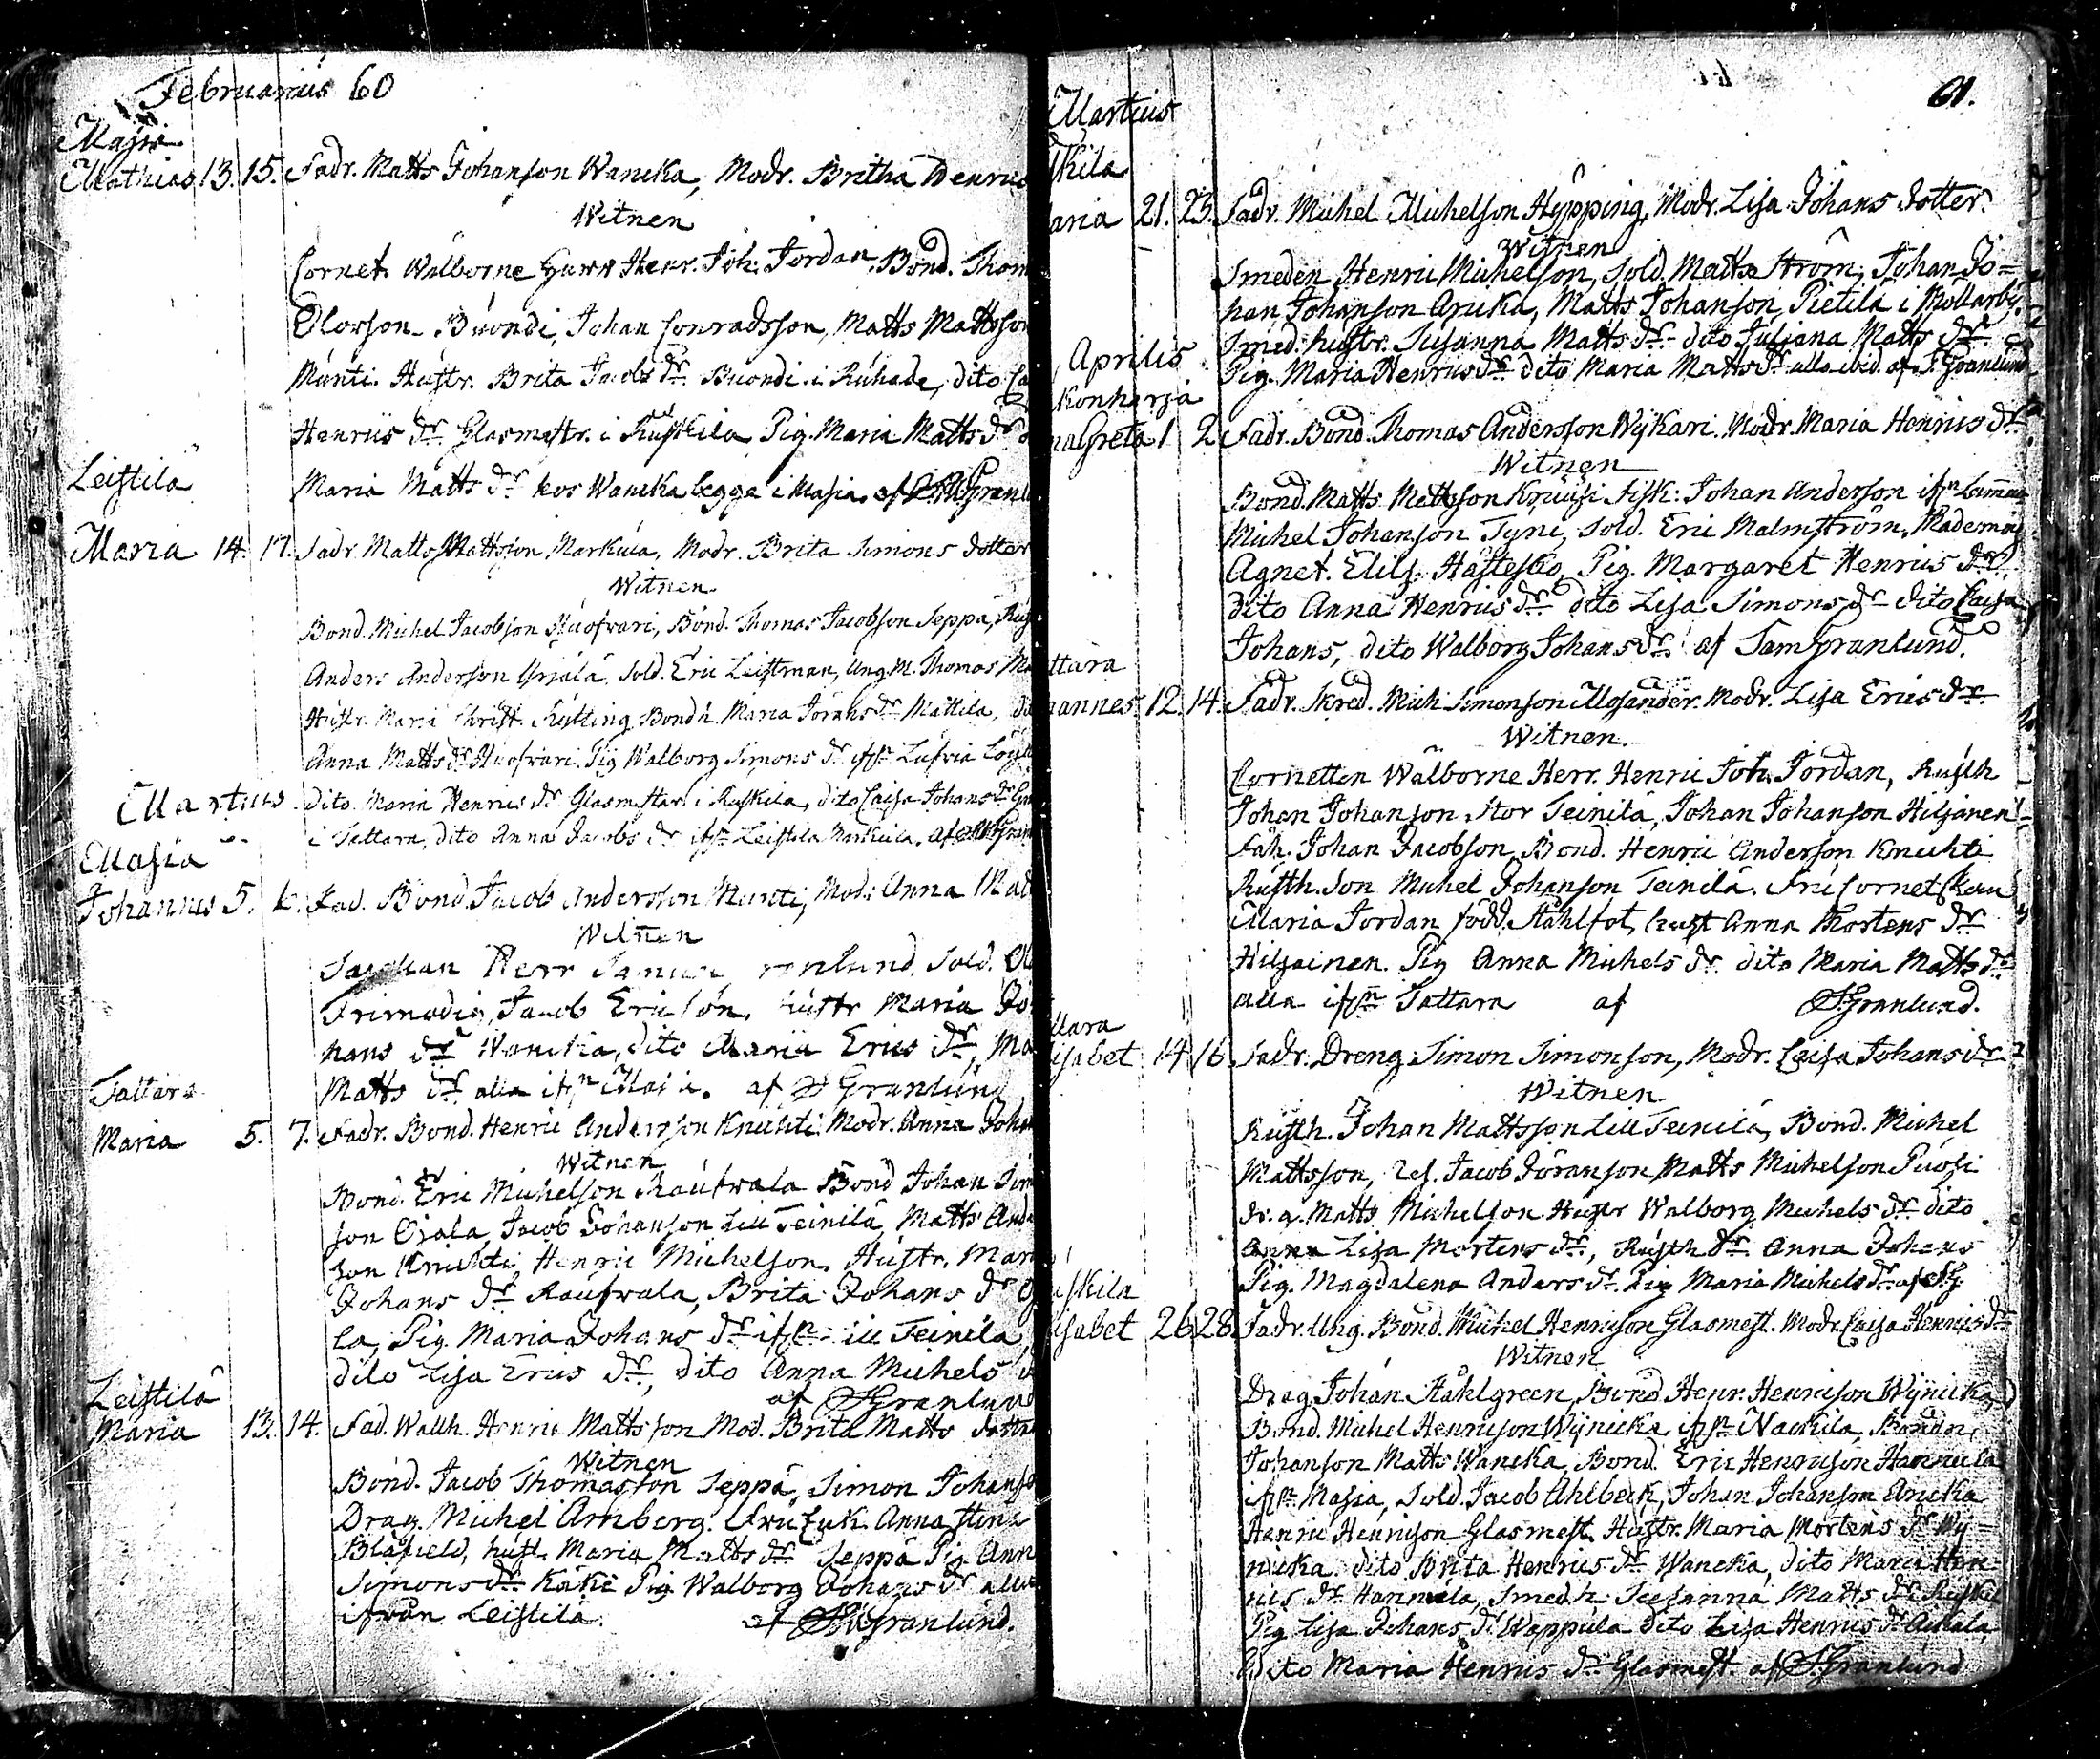 Februarius 60
Masia
Mathias 13. 15. Fadr. Matts Johanson Wancka, Modr. Britha Henrics
Witnen
Cornet. Walborne Henr. Joh. Jordan. Bond. Thom
Olorson Buondi, Johan Conradsson, Matts Mattsson
Munti. Hustr. Brita Jacobs dr Buondi i Ruhade, dito
Henrics dr Glasmestr. i Ruskila Pig. Maria Matts dr
Maria Matts dr hos Wancka begge i Masia. af Granl
Leistila
Maria 14. 17. Fadr. Matts Mattsson Markula, Modr. Brita Simons dotter
Witnen
Bond. Michel Jacobson Huofvari, Bond. Thomas Jacobson Seppä,
Anders Anderson Urjala, Sold. Eric Leistman, Ung. M. Thomas
Hustr. Maria Christ. Bondh. Maria Jörans dr Mattila,
Anna Matts dr Huofvari. Pig Walborg Simons dr ifrn
Martius
dito Maria Henrics dr Glasmestar i Ruskila, dito Caisa Johans dr
i Tattara, dito Anna Jacobs dr ifrn Leistila Markula. af Gran
Masia
Johannes 5. Fad. Bond. Jacob Andersson Muntti, Mod: Anna Mat
Witnen
Herr Sold.
Frimodig, Jacob Ericson, Hustr Maria Jo
hans dr Wancka, dito Maria Erics dr,
Matts dr alla ifrn Masia. af S Granlund
Tattara
Maria 5. 7. Fadr. Bond. Henric Andersson Knichti Modr. Anna Johan
Witnen
Bond. Eric Michelson Raufwala Bond Johan Sim
son Ojala, Jacob Johanson Lill Teinilä, Matts And
son Knichti, Henric Michelson, Hustr. Mar
Johans dr Raufwala, Brita Johans dr Oja
la, Pig. Maria Johans dr ifrn Lill Teinilä,
dito Lisa Erics dr, dito Anna Michels
af S Granlund
Leistila
Maria 13. 14. Fad. Wallh. Henric Mattsson Mod. Brita Matts dotter
Witnen
Bond. Jacob Thomasson Seppä, Simon Johanso
Drag. Michel Arnberg. Anna Stina
Blåfield, hust. Maria Matts dr Seppä Pig Ann
Simons dr Käki Pig Walborg Johans dr alla
ifrån Leistilä. af Granlund.
61.
Martius
skila
aria 21. 23. Fadr. Michel Michelson Hypping, Modr. Lisa Johans dotter.
Witnen
Smeden Henric Michelson, Sold. Matts Ström, Johan Jo=
han Johanson Aricka, Matts Johanson Pietilä i Mollarby.
Smed. hustr. Susanna Matts dr dito Juliana Matts dr
Pig. Maria Henrics dr dito Maria Matts dr alla ibid. af S Granlund
Aprilis
Konharja
naGreta 1 2. Fadr. Bond. Thomas Andersson Wijkari. Modr. Maria Henrics dr
Witnen
Bond. Matts Mattsson Kruusi Fisk: Johan Anderson ifrn
Michel Johanson Tyni, Sold. Eric Malmström, Mademois
Agnet. Elis. Hästesko, Pig. Margaret Henrics dr,
dito Anna Henrics dr dito Lisa Simons dr dito Caisa
Johans, dito Walborg Johans dr af Sam Granlund.
ttara
hannes 12. 14. Fadr. Skred. Mich. Simonson Mosander. Modr. Lisa Erics dr.
Witnen.
Cornetten Walborne Herr. Henric Joh. Jordan, Rusth
Johan Johanson Stor Teinilä, Johan Johanson Hiljanen
Fäh. Johan Jacobson, Bond. Henric Anderson Knichti
Rusth. Son Michel Johanson Teinilä. Fru Cornetskan
Maria Jordan född Stählfot, hust Anna Mortens dr
Hiljainen. Pig Anna Michels dr dito Maria Matts dr
alla ifrn Tattara af S. Granlund.
ttara
isabet 14 16. Fadr. Dreng. Simon Simonson, Modr. Caisa Johans dr
Witnen
Rusth. Johan Mattsson Lill Teinilä, Bond. Michel
Mattsson, Jacob Jöranson Matts Michelson Puosi
dr. g. Matts Michelson Hustr Walborg Michels dr dito
Anna Lisa Mortens dr, Rusth dr Anna Johans
Pig. Magdalena Anders dr. Pig Maria Michels dr. af S G
uskila
isabet 26 28. Fadr. Ung. Bond. Michel Henricson Glasmest. Modr. Caisa Henrics dr
Witnen
Drag. Johan Ståhlgreen, Bond Henr. Henricson Wynicka,
Bond. Michel Henricson Wijnicka ifrn Nackila, Bondn,
Johanson Matts Wancka, Bond. Eric Henricson Hannula
ifrn Masia, Sold. Jacob Ahlbeck, Johan Johanson Aricka
Henric Henricson Glasmest. Hustr. Maria Mortens dr Wij=
nicka. dito Brita Henrics dr Wancka, dito Maria Hen
rics dr Hannula, Smedh Susanna Matts dr Ruskil
Pig Lisa Johans dr Wappula dito Lisa Henrics dr Achala
Dito Maria Henrics dr Glasmest. af S. Granlund